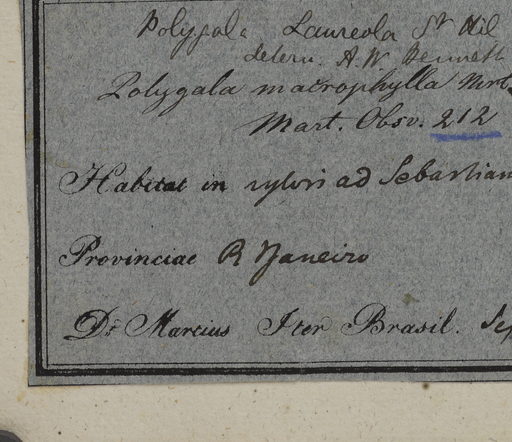 Polygala Laureola St Hil
determ. A. W Bennett
Polygala macrophylla Mrt.
Mart. Obsv. 212
Habitat in sylvis ad Sebastian
Provinciae R Janeiro
Dr Martius Iter Brasil. Sep